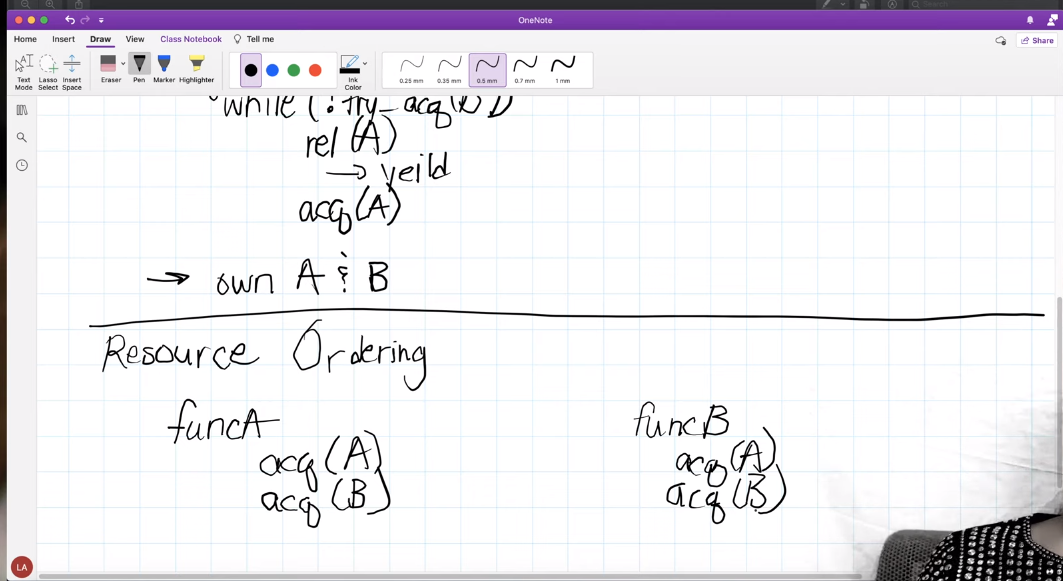 Search
OneNote
Home Insert Draw View Class Notebook Tell me
Share
Text Mode
Lasso Select
Insert Space
Eraser
Pen
Marker
Highlighter
Ink Color
0.25 mm 0.35 mm 0.5 mm 0.7 mm 1 mm
while (!try_acq(B))
rel (A)
→ yeild
acq (A)
→ own A & B
Resource Ordering
funcA
acq (A)
acq (B)
funcB
acq (A)
acq (B)
LA